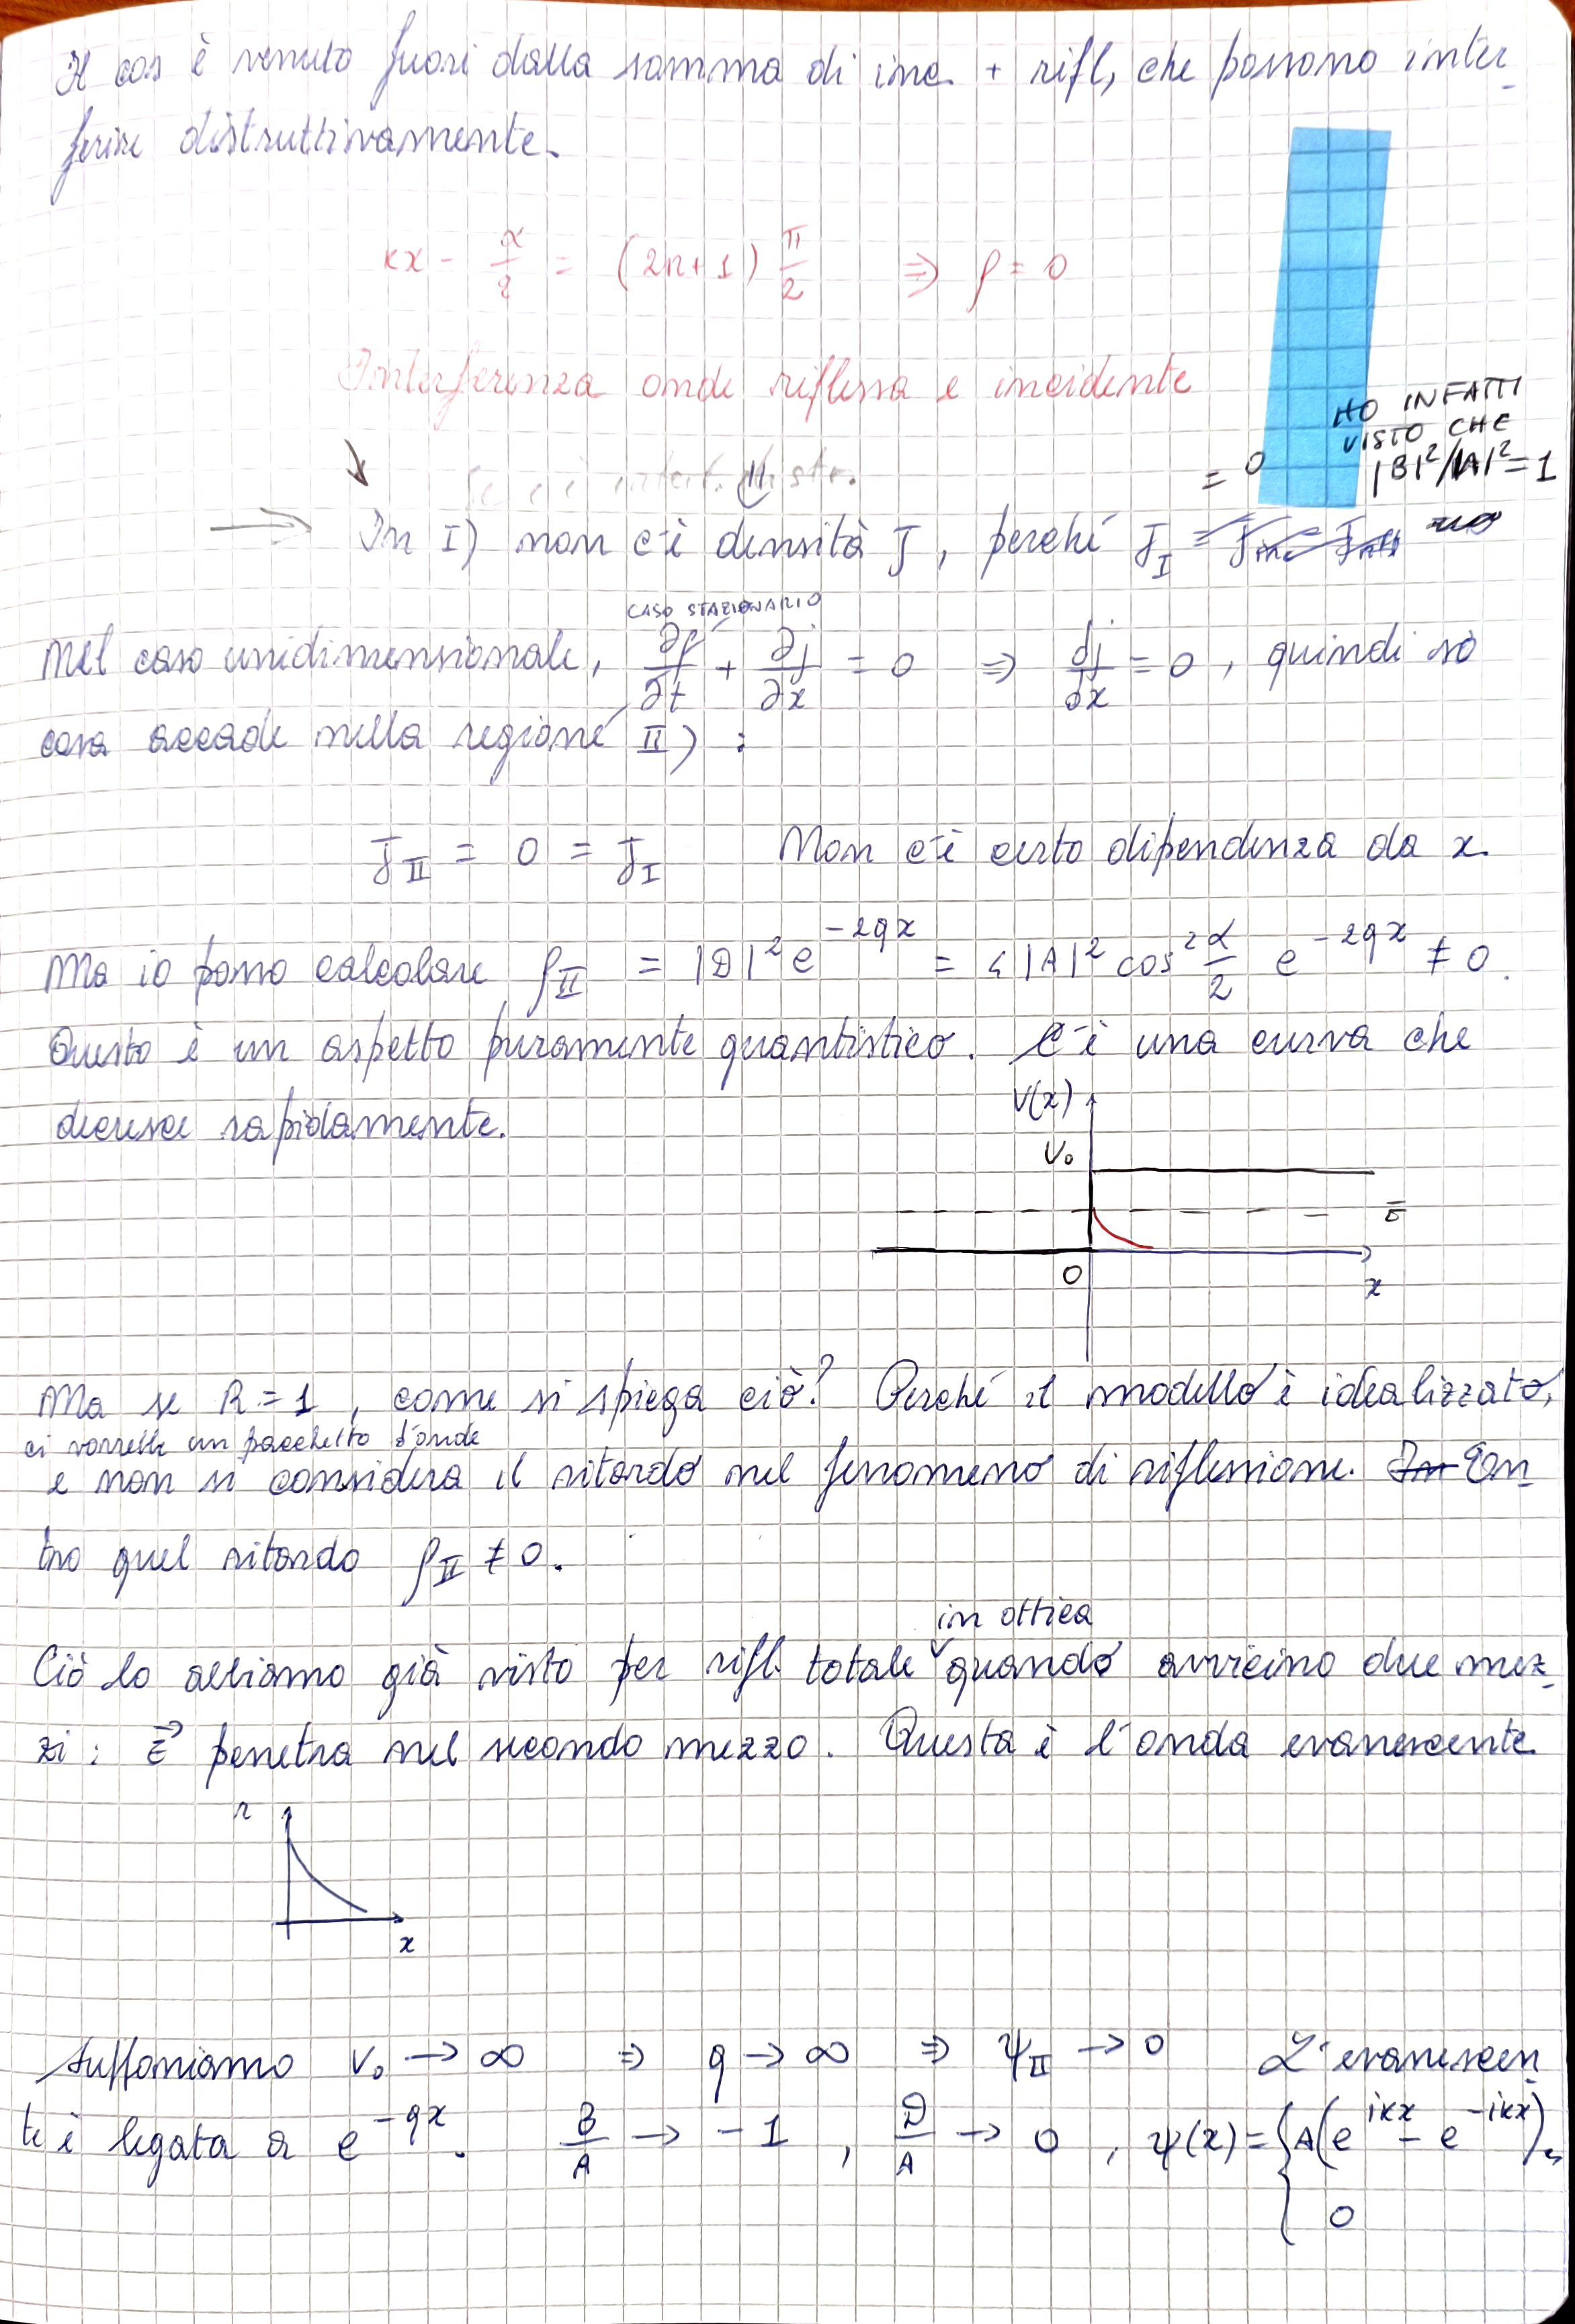 Il cos è venuto fuori dalla somma di inc. + rifl, che possono inter-
ferire distruttivamente.
kx - α/2 = (2n+1) π/2 ⇒ ρ = 0
Interferenza onde riflessa e incidente
HO INFATTI
VISTO CHE
|B|²/|A|² = 1
= 0
→ In I) non c'è densità J, perché J_I
CASO STAZIONARIO
Nel caso unidimensionale, ∂ρ/∂t + ∂j/∂x = 0 ⇒ dj/dx = 0, quindi so
cosa accade nella regione II) :
J_II = 0 = J_I Non c'è certo dipendenza da x.
Ma io posso calcolare ρ_II = |D|² e^{-2qx} = 4|A|² cos² α/2 e^{-2qx} ≠ 0.
Questo è un aspetto puramente quantistico. C'è una curva che
decresce rapidamente.
V(x)
V₀
E
O
x
Ma se R = 1, come si spiega ciò? Perché il modello è idealizzato,
ci vorrebbe un pacchetto d'onde
e non si considera il ritardo nel fenomeno di riflessione. In En-
tro quel ritardo ρ_II ≠ 0.
in ottica
Ciò lo abbiamo già visto per rifl. totale quando avvicino due mez-
zi: E⃗ penetra nel secondo mezzo. Questa è l'onda evanescente.
x
Supponiamo V₀ → ∞ ⇒ q → ∞ ⇒ ψ_II → 0 L'evanescen-
te è legata a e^{-qx}. B/A → -1, D/A → 0, ψ(x) = { A(e^{ikx} - e^{-ikx}),
0